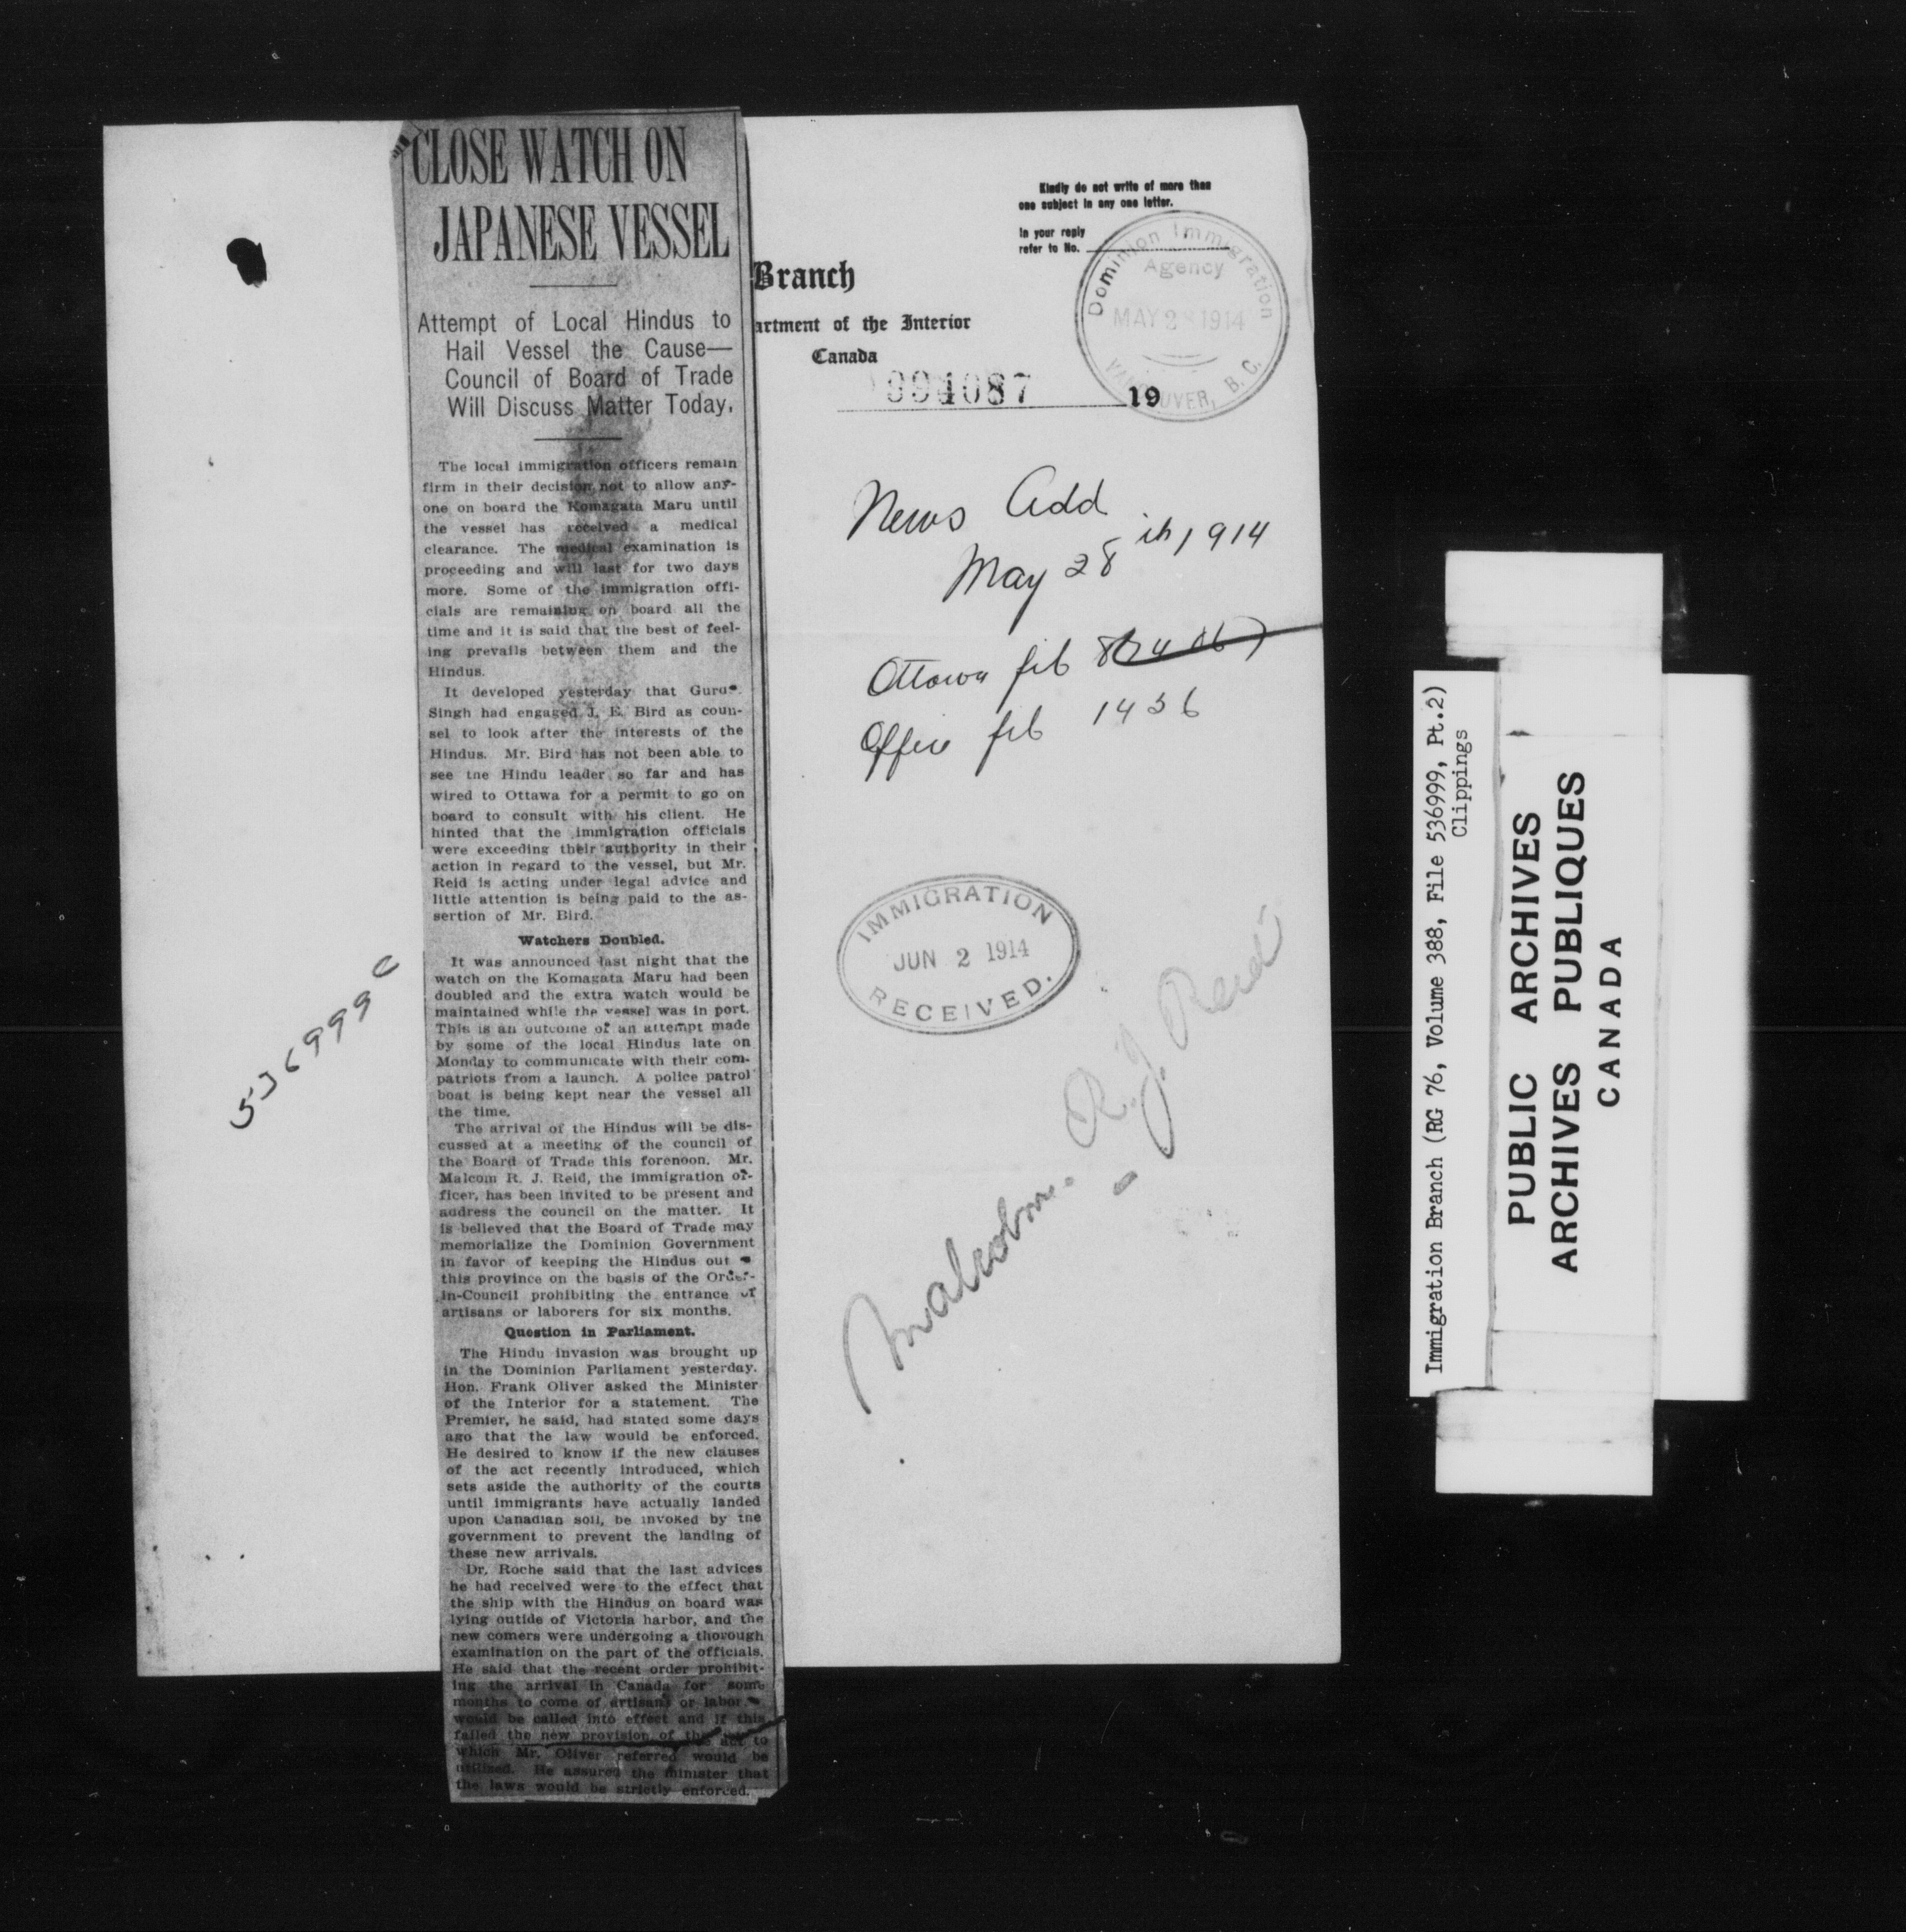 CLOSE WATCH ON
JAPANESE VESSEL
Attempt of Local Hindus to
Hail Vessel the Cause—
Council of Board of Trade
Will Discuss Matter Today.
The local immigration officers remain
firm in their decision not to allow any-
one on board the Komagata Maru until
the vessel has received a medical
clearance. The medical examination is
proceeding and will last for two days
more. Some of the immigration offi-
cials are remaining on board all the
time and it is said that the best of feel-
ing prevails between them and the
Hindus.
It developed yesterday that Gurd
Singh had engaged J. E. Bird as coun-
sel to look after the interests of the
Hindus. Mr. Bird has not been able to
see the Hindu leader so far and has
wired to Ottawa for a permit to go on
board to consult with his client. He
hinted that the immigration officials
were exceeding their authority in their
action in regard to the vessel, but Mr.
Reid is acting under legal advice and
little attention is being paid to the as-
sertion of Mr. Bird.
Watchers Doubled.
It was announced last night that the
watch on the Komagata Maru had been
doubled and the extra watch would be
maintained while the vessel was in port.
This is an outcome of an attempt made
by some of the local Hindus late on
Monday to communicate with their com-
patriots from a launch. A police patrol
boat is being kept near the vessel all
the time.
The arrival of the Hindus will be dis-
cussed at a meeting of the council of
the Board of Trade this forenoon. Mr.
Malcom R. J. Reid, the immigration of-
ficer, has been invited to be present and
address the council on the matter. It
is believed that the Board of Trade may
memorialize the Dominion Government
in favor of keeping the Hindus out
this province on the basis of the Order-
in-Council prohibiting the entrance of
artisans or laborers for six months.
Question in Parliament.
The Hindu invasion was brought up
in the Dominion Parliament yesterday.
Hon. Frank Oliver asked the Minister
of the Interior for a statement. The
Premier, he said, had stated some days
ago that the law would be enforced.
He desired to know if the new clauses
of the act recently introduced, which
sets aside the authority of the courts
until immigrants have actually landed
upon Canadian soil, be invoked by the
government to prevent the landing of
these new arrivals.
Dr. Roche said that the last advices
he had received were to the effect that
the ship with the Hindus on board was
lying outide of Victoria harbor, and the
new comers were undergoing a thorough
examination on the part of the officials.
He said that the recent order prohibit-
ing the arrival in Canada for some
months to come of artisans or labor
would be called into effect and if this
failed the new provision of the act to
which Mr. Oliver referred would be
utilized. He assured the minister that
the laws would be strictly enforced.
Kindly do not write of more than
one subject in any one letter.
In your reply
refer to No.
Dominion Immigration
Agency
MAY 28 1914
VANCOUVER, B. C.
Branch
artment of the Interior
Canada
994087
19
News Add
May 28th, 1914
Ottawa fil
Office fil 1436
IMMIGRATION
JUN 2 1914
RECEIVED.
Malcolm R. J. Reid
536999 C
Immigration Branch (RG 76, Volume 388, File 536999, Pt.2)
Clippings
PUBLIC ARCHIVES
ARCHIVES PUBLIQUES
CANADA